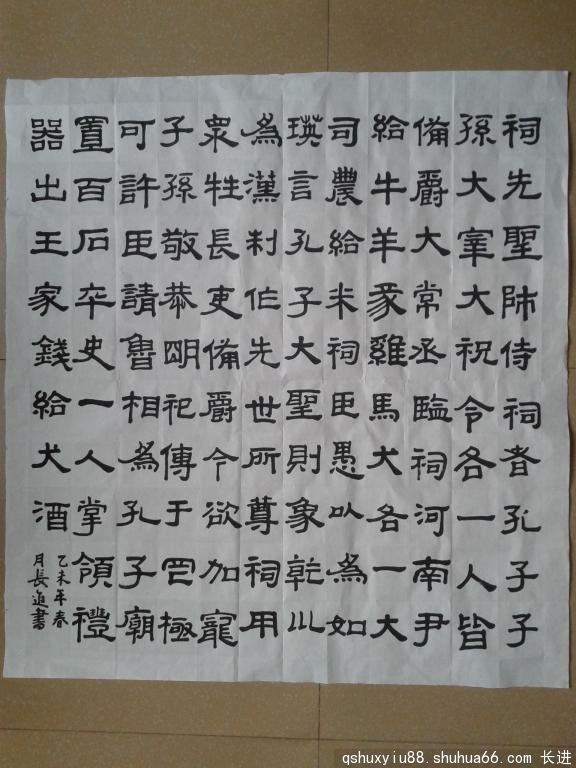 祠先聖師侍祠者孔子子
孫大宰大祝令各一人皆
備爵大常丞臨祠河南尹
給牛羊豕雞馬犬各一大
司農給米祠臣愚以為如
瑛言孔子大聖則象乾川
為漢制作先世所尊祠用
眾牲長吏備爵今欲加寵
子孫敬恭明祀傳于罔極
可許臣請魯相為孔子廟
置百石卒史一人掌領禮
器出王家錢給犬酒
乙未年春
月長進書
qshuxyiu88.shuhua66.com 长进